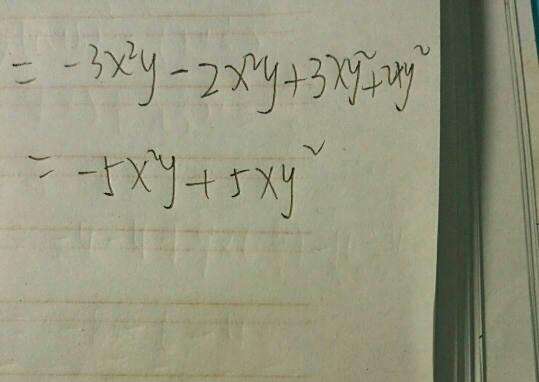 = -3x²y - 2x²y + 3xy² + 2xy²
= -5x²y + 5xy²